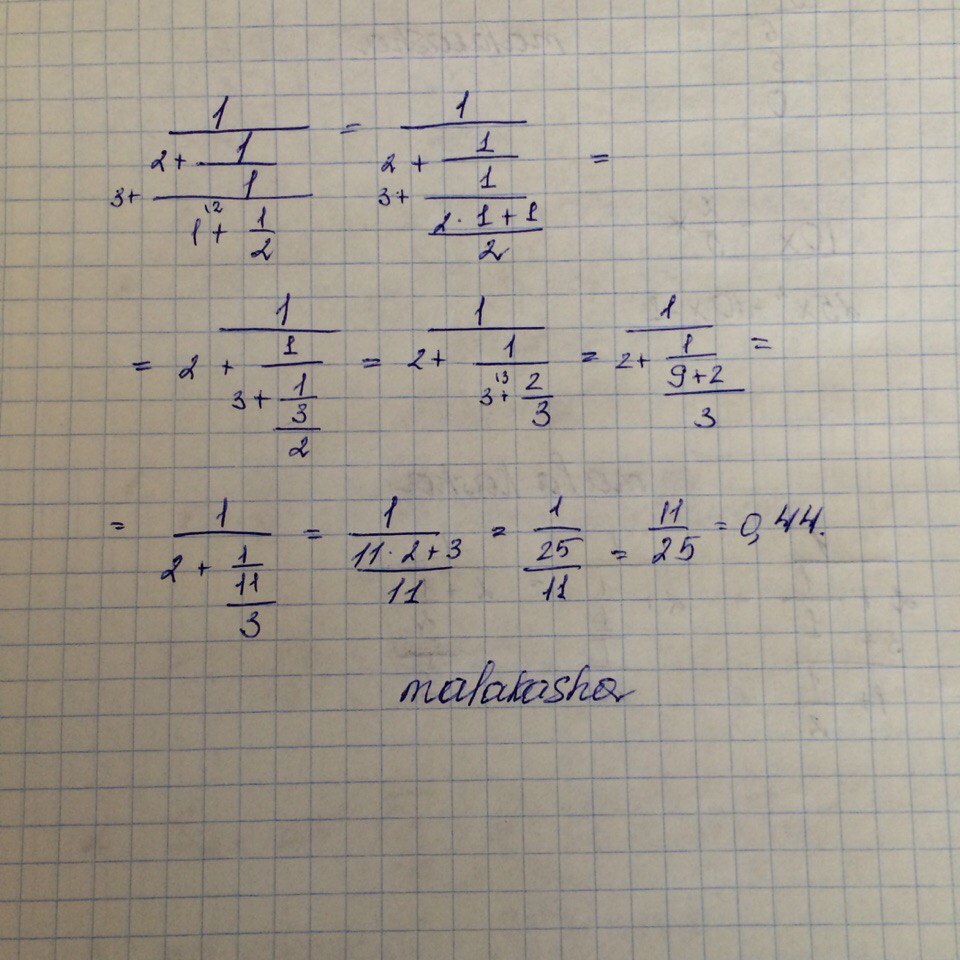 1/(2 + 1/(3 + 1/(1 + 1/2))) = 1/(2 + 1/(3 + 1/((2 · 1 + 1)/2))) =
= 1/(2 + 1/(3 + 1/(3/2))) = 1/(2 + 1/(3 + 2/3)) = 1/(2 + 1/((9+2)/3)) =
= 1/(2 + 1/(11/3)) = 1/((11 · 2 + 3)/11) = 1/(25/11) = 11/25 = 0,44.
malakasha